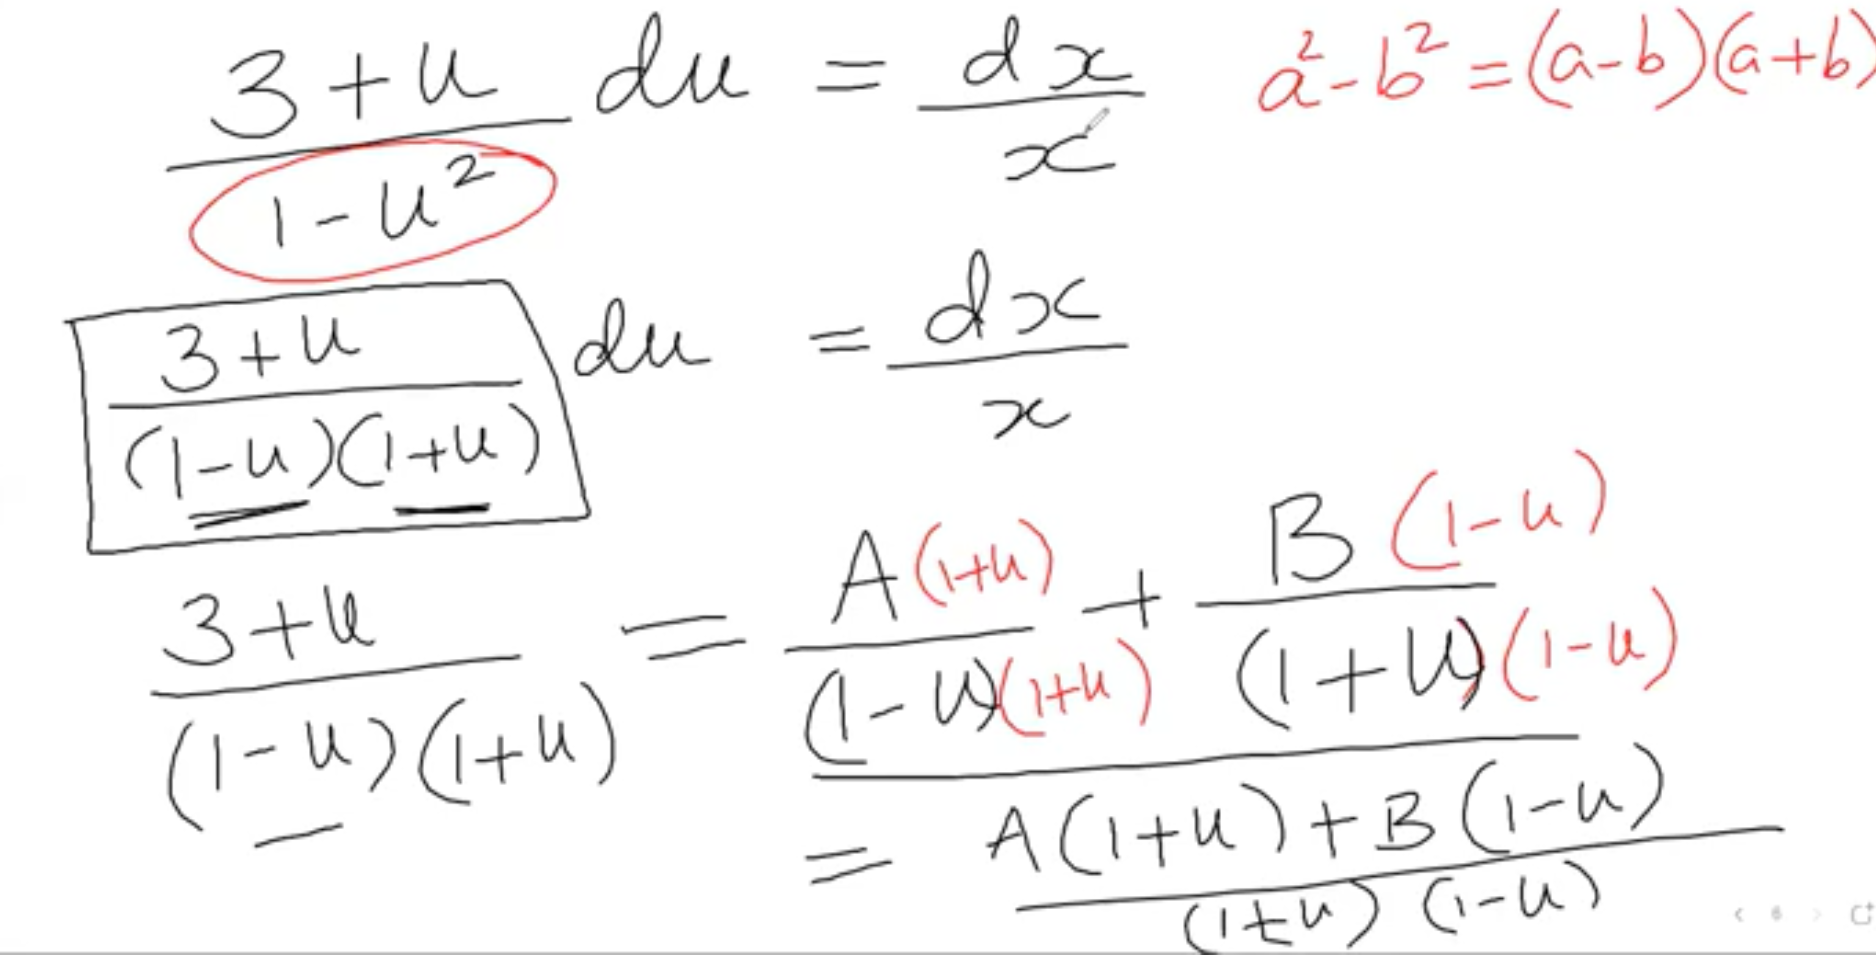 (3+u)/(1-u²) du = dx/x
a²-b² = (a-b)(a+b)
(3+u)/((1-u)(1+u)) du = dx/x
(3+u)/((1-u)(1+u)) = A(1+u)/((1-u)(1+u)) + B(1-u)/((1+u)(1-u))
= (A(1+u)+B(1-u))/((1+u)(1-u))
6